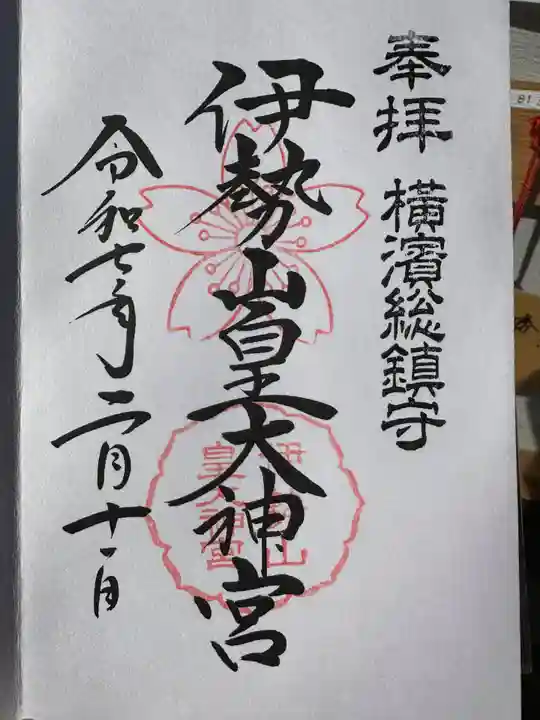 奉拝
横濱総鎮守
伊勢山皇大神宮
令和七年二月十一日
伊勢山
皇大神宮
81